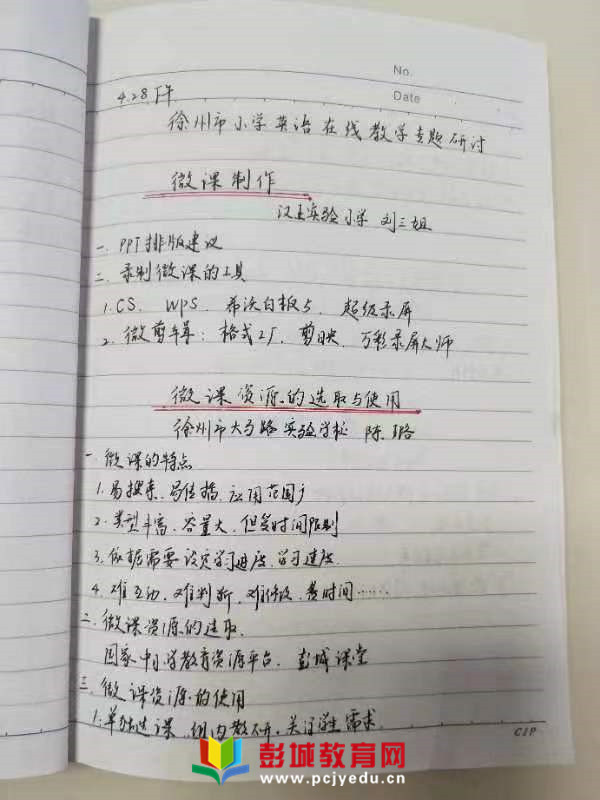 No.
Date
4.28下午
徐州市小学英语在线教学专题研讨
微课制作
汉王实验小学 刘三姐
一、PPT排版建议
二、录制微课的工具
1. CS、WPS、希沃白板5、超级录屏
2. 微剪辑：格式工厂、剪映、万彩录屏大师
微课资源的选取与使用
徐州市大马路实验学校 陈璐
一、微课的特点
1. 易搜索、易传播、应用范围广
2. 类型丰富、容量大、但受时间限制
3. 依据需要设定学习进度、学习速度
4. 难互动、难判断、难修改、费时间……
二、微课资源的选取.
国家中小学教育资源平台、彭城课堂
三、微课资源的使用
1. 单独建课 组内教研、关注学生需求
CIP
彭城教育网
www.pcjyedu.cn